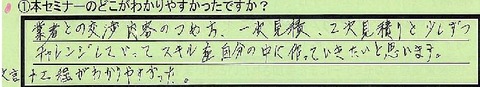 ①本セミナーのどこがわかりやすかったですか?
業者との交渉内容のつめ方、一次見積、二次見積りと少しずつ
チャレンジしていってスキルを自分の中に作っていきたいと思います。
工程がわかりやすかった。